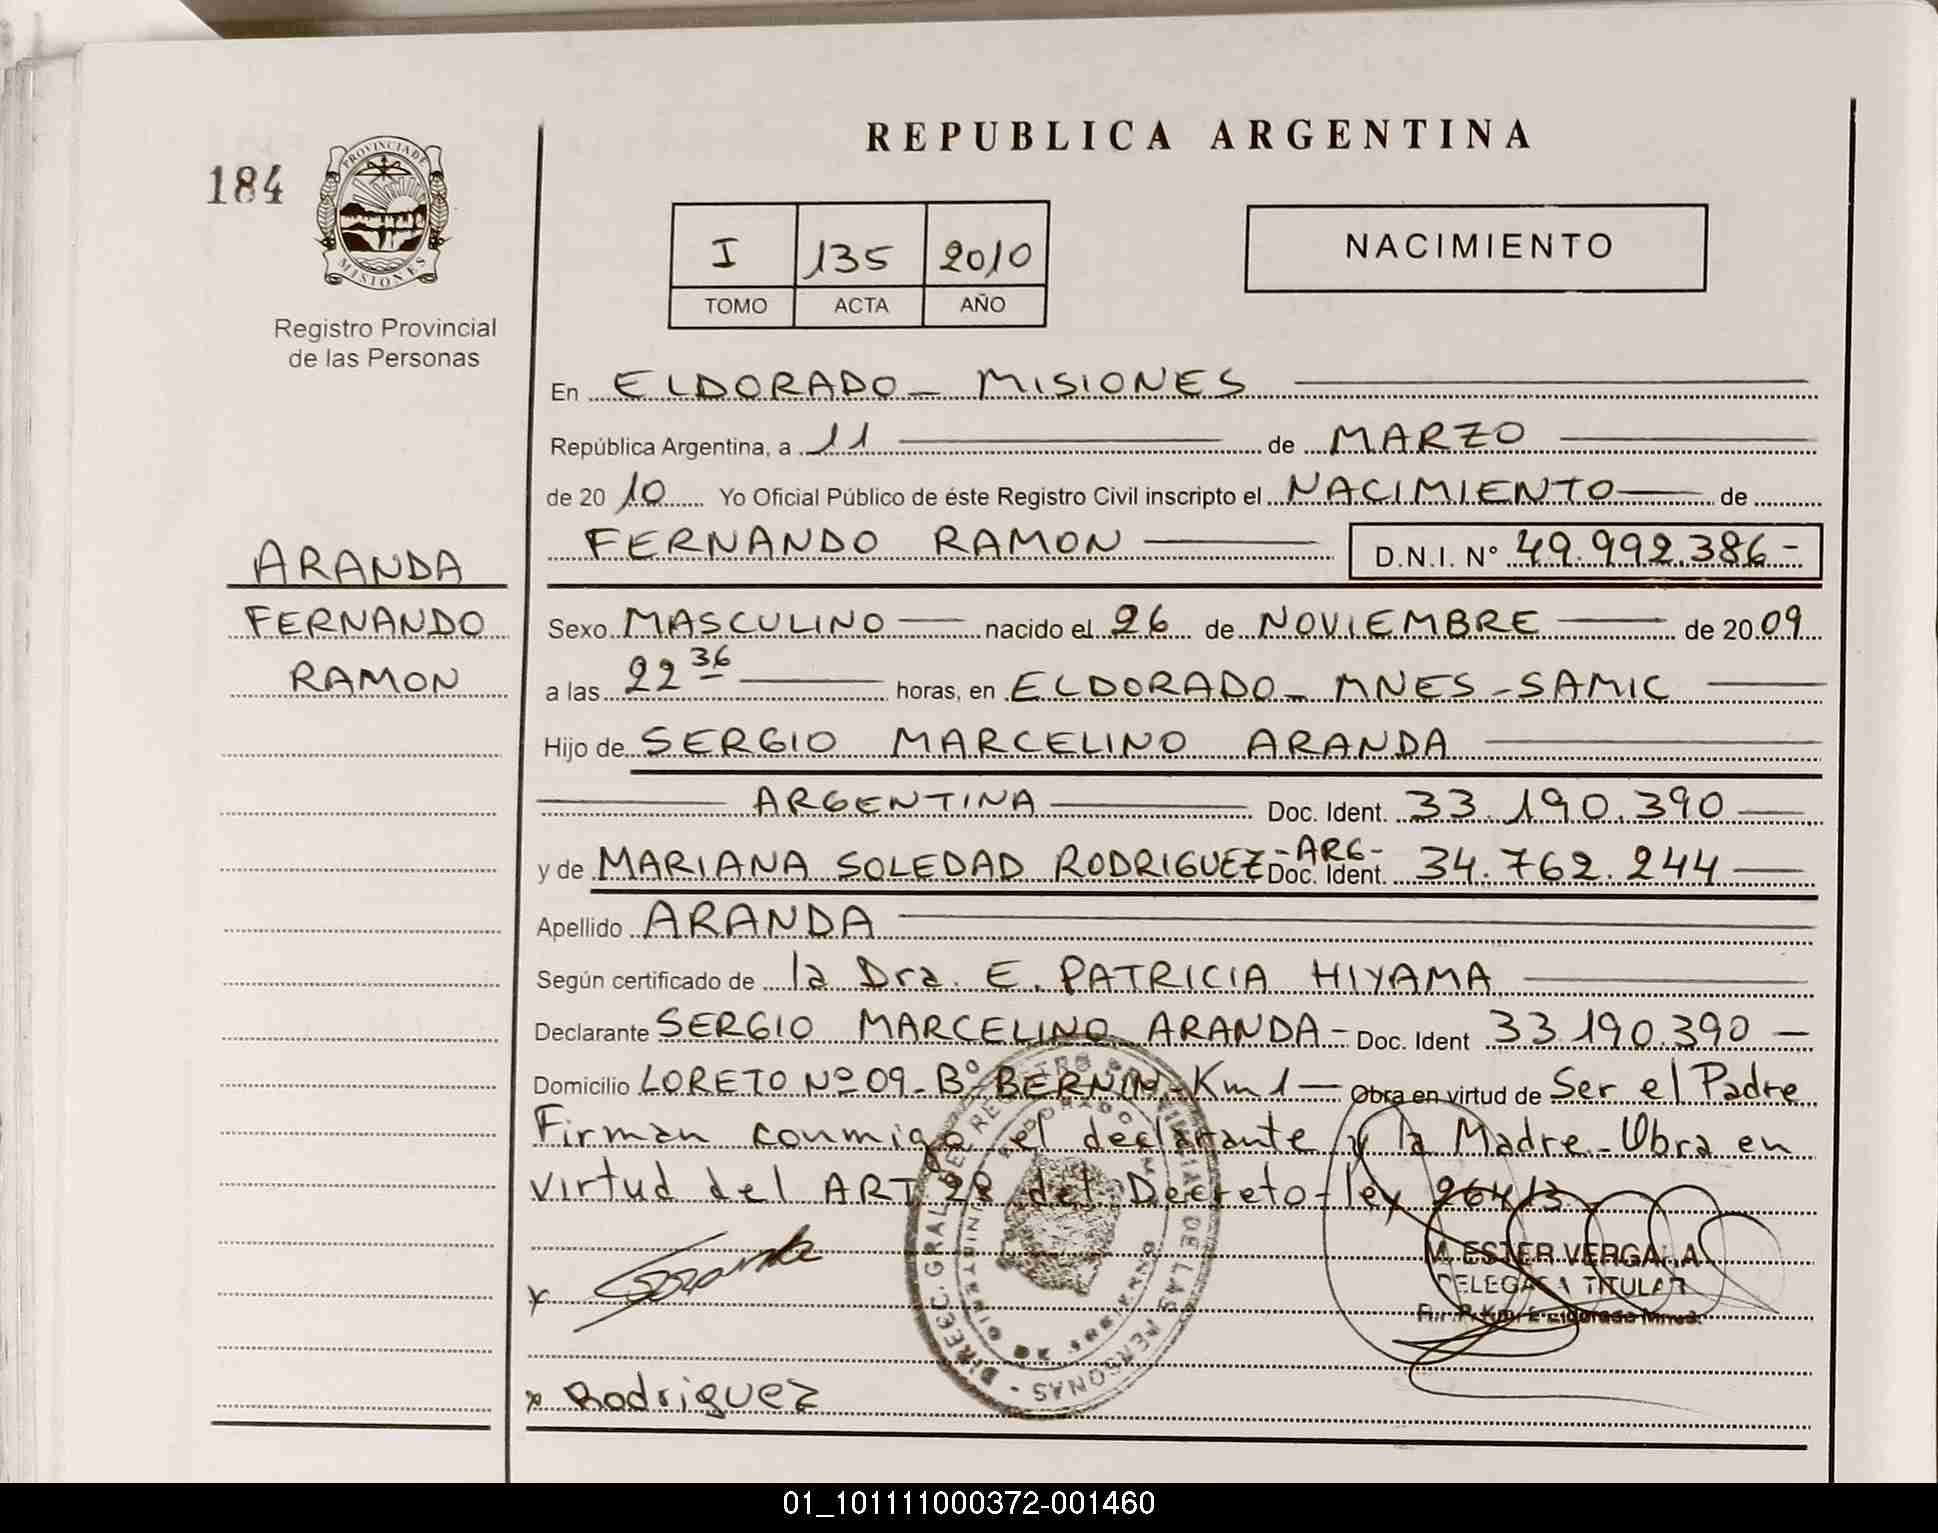 REPUBLICA ARGENTINA
184
PROVINCIA DE
MISIONES
Registro Provincial
de las Personas
I 135 2010
TOMO ACTA AÑO
NACIMIENTO
En ELDORADO - MISIONES
República Argentina, a 11 de MARZO
de 2010 Yo Oficial Público de éste Registro Civil inscripto el NACIMIENTO de
FERNANDO RAMON D.N.I. N° 49.992.386-
ARANDA
FERNANDO
RAMON
Sexo MASCULINO nacido el 26 de NOVIEMBRE de 2009
a las 22 36 horas, en ELDORADO - MNES - SAMIC
Hijo de SERGIO MARCELINO ARANDA
ARGENTINA Doc. Ident. 33.190.390
y de MARIANA SOLEDAD RODRIGUEZ -ARG- Doc. Ident. 34.762.244
Apellido ARANDA
Según certificado de la Dra. E. PATRICIA HIYAMA
Declarante SERGIO MARCELINO ARANDA - Doc. Ident 33.190.390 -
Domicilio LORETO Nº 09 - Bº BERNIN - Km 1 - Obra en virtud de Ser el Padre
Firman conmigo el declarante y la Madre - Obra en
virtud del ART 28 del Decreto-ley
DIRECC. GRAL DEL REGISTRO PROVINCIAL DE LAS PERSONAS
M. ESTER VERGARA
DELEGADA TITULAR
x
x Rodriguez
01_101111000372-001460